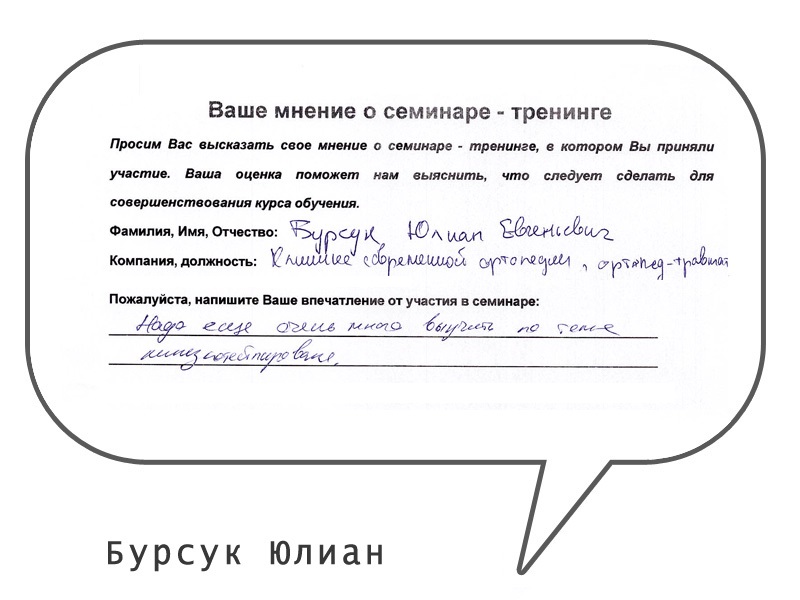 Ваше мнение о семинаре - тренинге
Просим Вас высказать свое мнение о семинаре - тренинге, в котором Вы приняли
участие. Ваша оценка поможет нам выяснить, что следует сделать для
совершенствования курса обучения.
Фамилия, Имя, Отчество: Бурсук Юлиан Евгеньевич
Компания, должность: Клиника современной ортопедии, ортопед-травмат
Пожалуйста, напишите Ваше впечатление от участия в семинаре:
Надо еще очень много выучить по теме
кинезиотейпирования.
Бурсук Юлиан